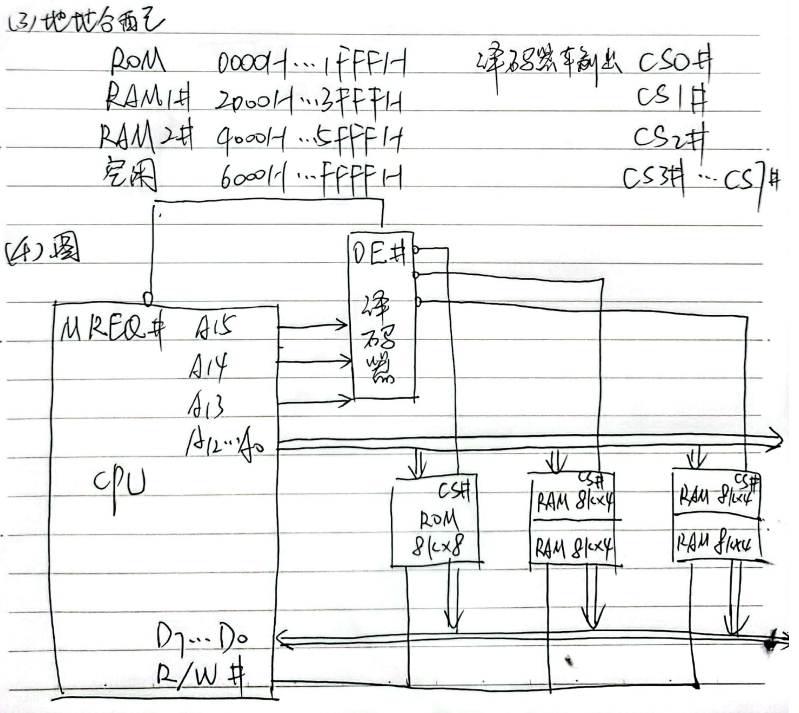 (3)地址分配
ROM 0000H…1FFFH 译码器输出 CS0#
RAM1# 2000H…3FFFH CS1#
RAM2# 4000H…5FFFH CS2#
空闲 6000H…FFFFH CS3#…CS7#
(4)图
OE#
译码器
MREQ# A15
A14
A13
A12…A0
CPU
CS#
ROM
8K×8
CS#
RAM 8K×4
RAM 8K×4
CS#
RAM 8K×4
RAM 8K×4
D7…D0
R/W#